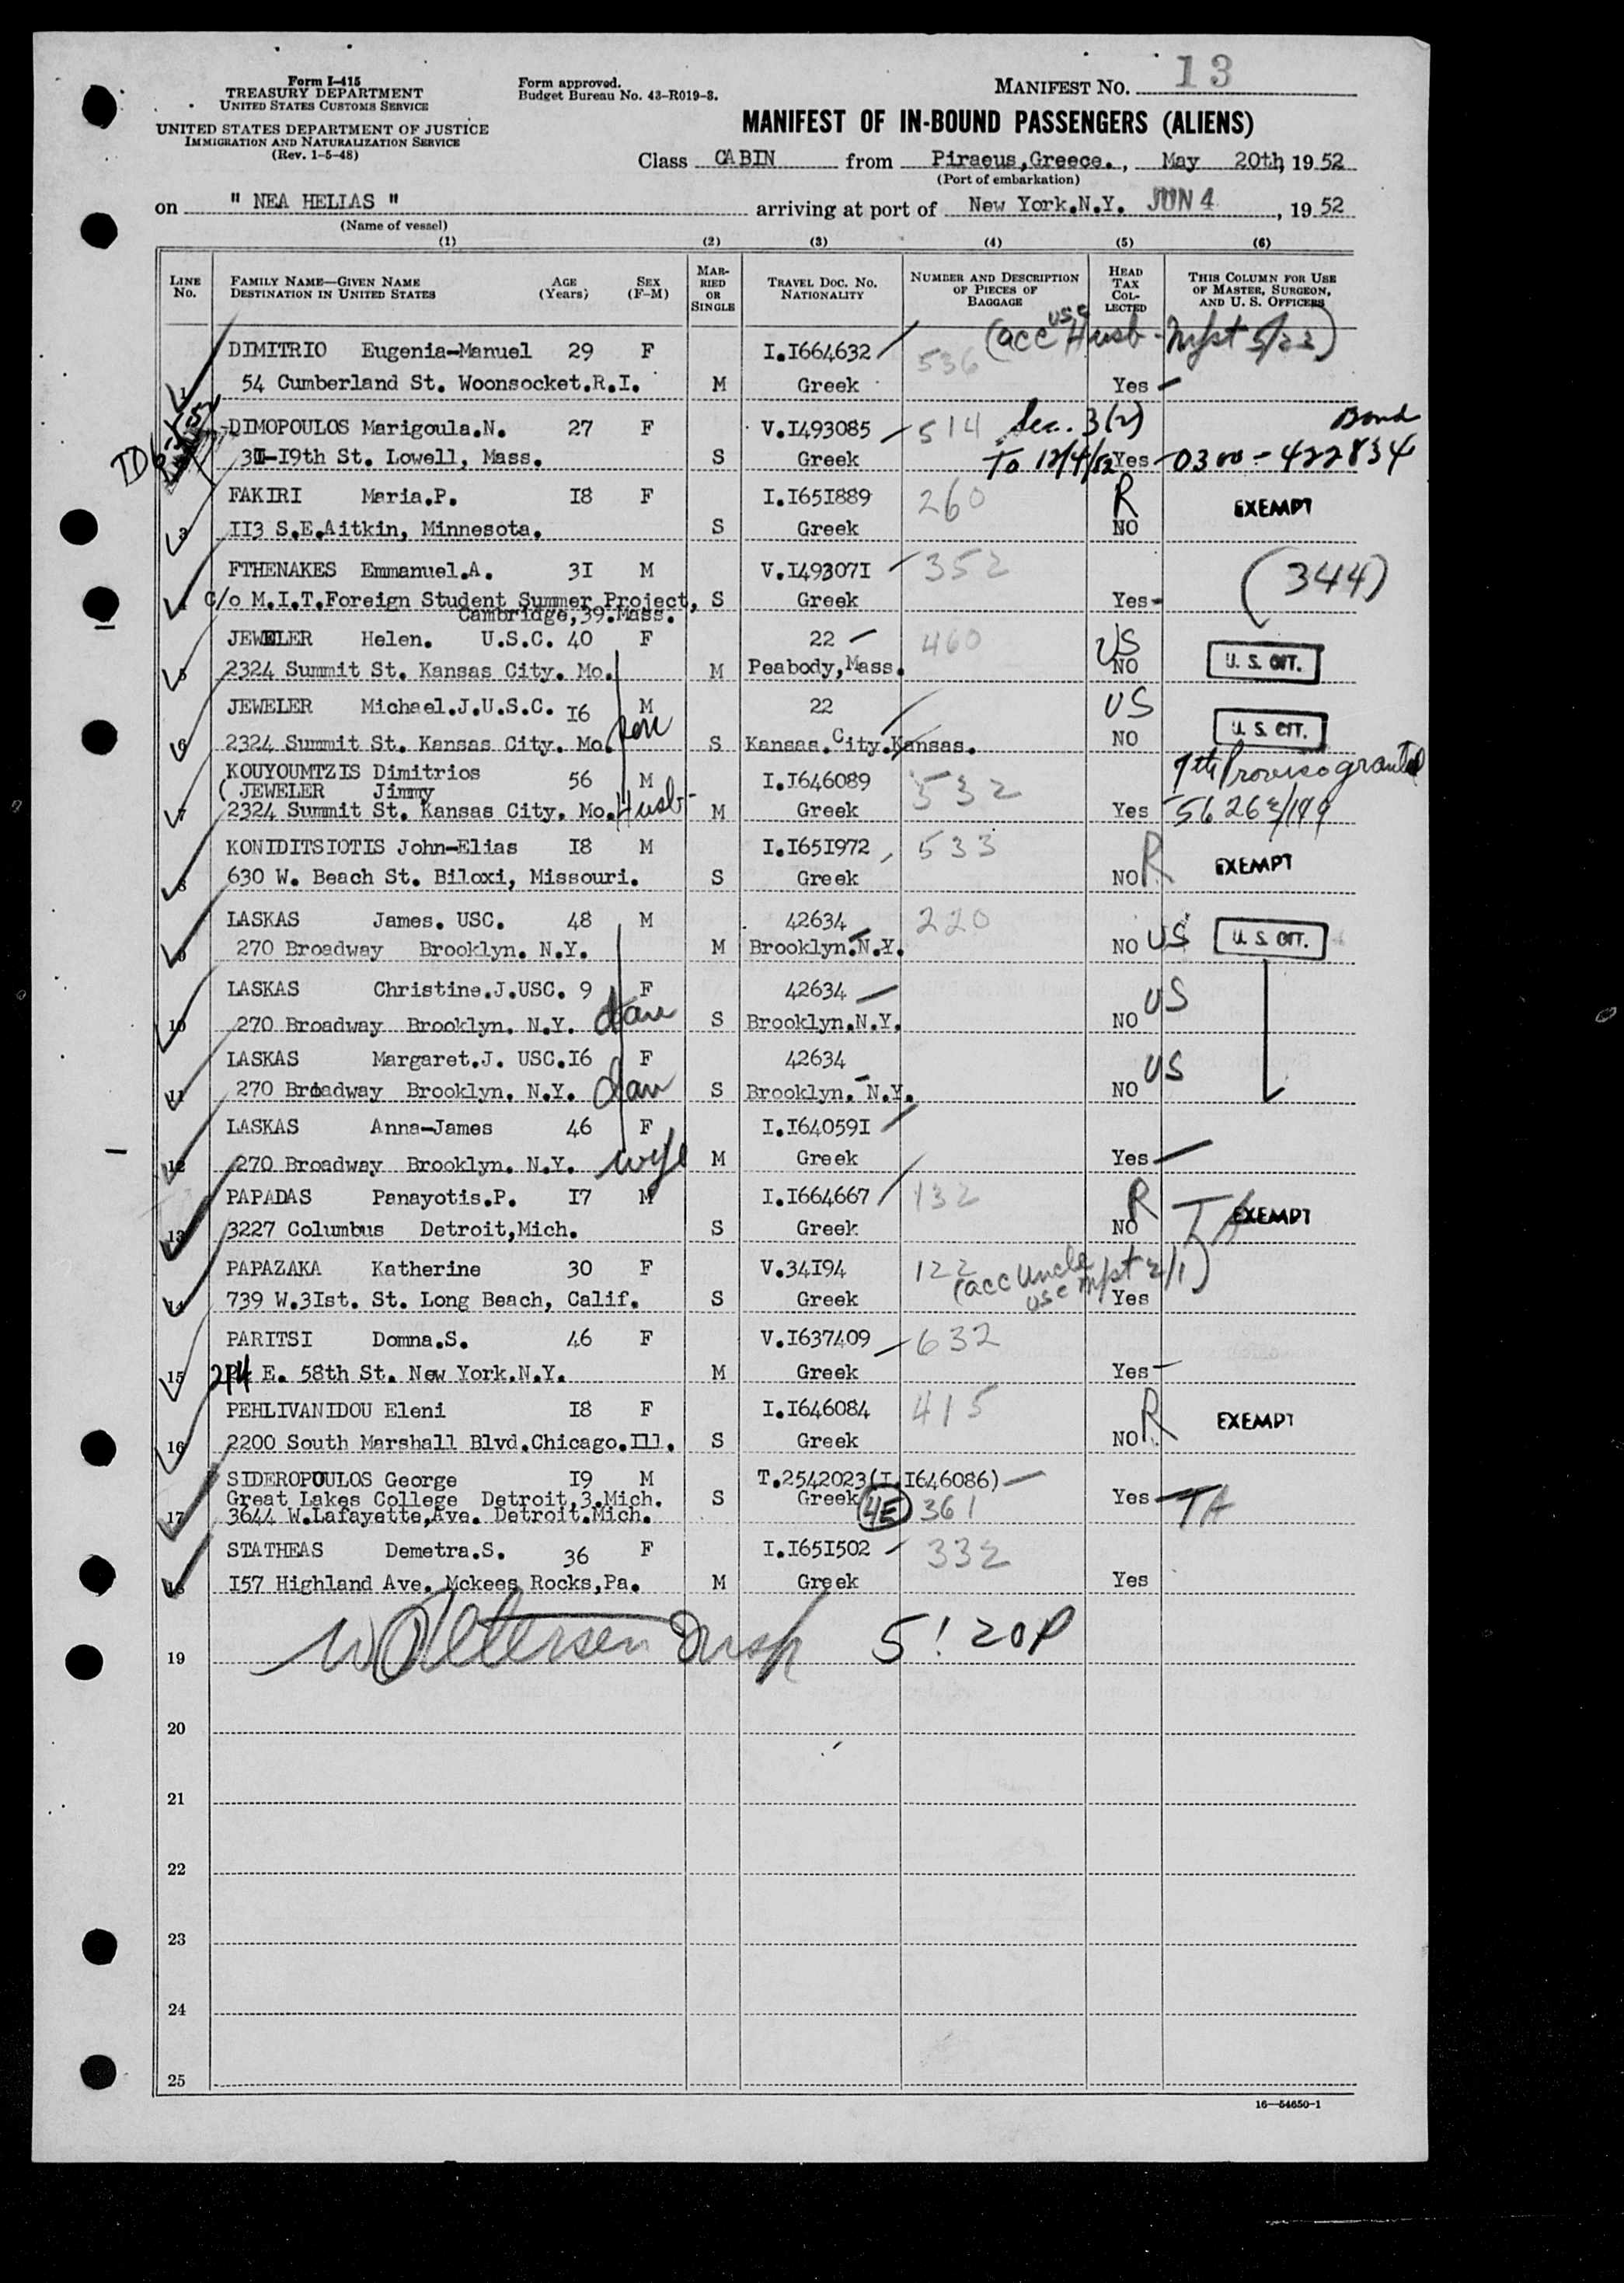 Form I-415
TREASURY DEPARTMENT
UNITED STATES CUSTOMS SERVICE
UNITED STATES DEPARTMENT OF JUSTICE
IMMIGRATION AND NATURALIZATION SERVICE
(Rev. 1-5-48)
Form approved.
Budget Bureau No. 43-R019-3.
MANIFEST NO. 13
MANIFEST OF IN-BOUND PASSENGERS (ALIENS)
Class CABIN from Piraeus,Greece., May 20th, 19 52
(Port of embarkation)
on " NEA HELIAS " arriving at port of New York.N.Y. JUN 4, 19 52
(Name of vessel)
(1) (2) (3) (4) (5) (6)
LINE No. FAMILY NAME—GIVEN NAME DESTINATION IN UNITED STATES AGE (Years) SEX (F-M) MARRIED OR SINGLE TRAVEL DOC. NO. NATIONALITY NUMBER AND DESCRIPTION OF PIECES OF BAGGAGE HEAD TAX COLLECTED THIS COLUMN FOR USE OF MASTER, SURGEON, AND U. S. OFFICERS
DIMITRIO Eugenia-Manuel 29 F I.I664632 536 (acc USC Husb - Mfst 5/23)
1 54 Cumberland St. Woonsocket.R.I. M Greek Yes
DIMOPOULOS Marigoula.N. 27 F V.I493085 514 Sec. 3(2) Bond
3I-I9th St. Lowell, Mass. S Greek To 12/4/52 Yes 0300-422834
FAKIRI Maria.P. I8 F I.I651889 260 R EXEMPT
3 II3 S.E.Aitkin, Minnesota. S Greek NO
FTHENAKES Emmanuel.A. 3I M V.I49307I 352 (344)
4 C/o M.I.T.Foreign Student Summer Project, S Greek Yes
Cambridge,39.Mass.
JEWELER Helen. U.S.C. 40 F 22 460 US
5 2324 Summit St. Kansas City. Mo. M Peabody,Mass. NO U. S. CIT.
JEWELER Michael.J.U.S.C. I6 M 22 US
6 2324 Summit St. Kansas City. Mo. son S Kansas.City.Kansas. NO U. S. CIT.
KOUYOUMTZIS Dimitrios 56 M I.I646089 532 7th Proviso granted
( JEWELER Jimmy
7 2324 Summit St. Kansas City. Mo. Husb- M Greek Yes 56262/199
KONIDITSIOTIS John-Elias I8 M I.I65I972 533
8 630 W. Beach St. Biloxi, Missouri. S Greek NO R EXEMPT
LASKAS James. USC. 48 M 42634 220
9 270 Broadway Brooklyn. N.Y. M Brooklyn.N.Y. NO US U. S. CIT.
LASKAS Christine.J.USC. 9 F 42634 US
10 270 Broadway Brooklyn. N.Y. dau S Brooklyn.N.Y. NO
LASKAS Margaret.J. USC.I6 F 42634 US
11 270 Broadway Brooklyn. N.Y. dau S Brooklyn. N.Y. NO
LASKAS Anna-James 46 F I.I64059I
12 270 Broadway Brooklyn. N.Y. wife M Greek Yes
PAPADAS Panayotis.P. I7 M I.I664667 132 R EXEMPT
13 3227 Columbus Detroit,Mich. S Greek NO TA
PAPAZAKA Katherine 30 F V.34I94 122 (acc Uncle USC Mfst 2/1)
14 739 W.3Ist. St. Long Beach, Calif. S Greek Yes
PARITSI Domna.S. 46 F V.I637409 632
15 214 E. 58th St. New York.N.Y. M Greek Yes
PEHLIVANIDOU Eleni I8 F I.I646084 415
16 2200 South Marshall Blvd.Chicago.Ill. S Greek NO R EXEMPT
SIDEROPOULOS George I9 M T.2542023(I.I646086)
Great Lakes College Detroit,3.Mich. S Greek 4E 361 Yes TA
17 3644 W.Lafayette,Ave. Detroit.Mich.
STATHEAS Demetra.S. 36 F I.I65I502 332
18 I57 Highland Ave. Mckees Rocks,Pa. M Greek Yes
19 Petersen Insp 5:20P
20
21
22
23
24
25
16—54650-1